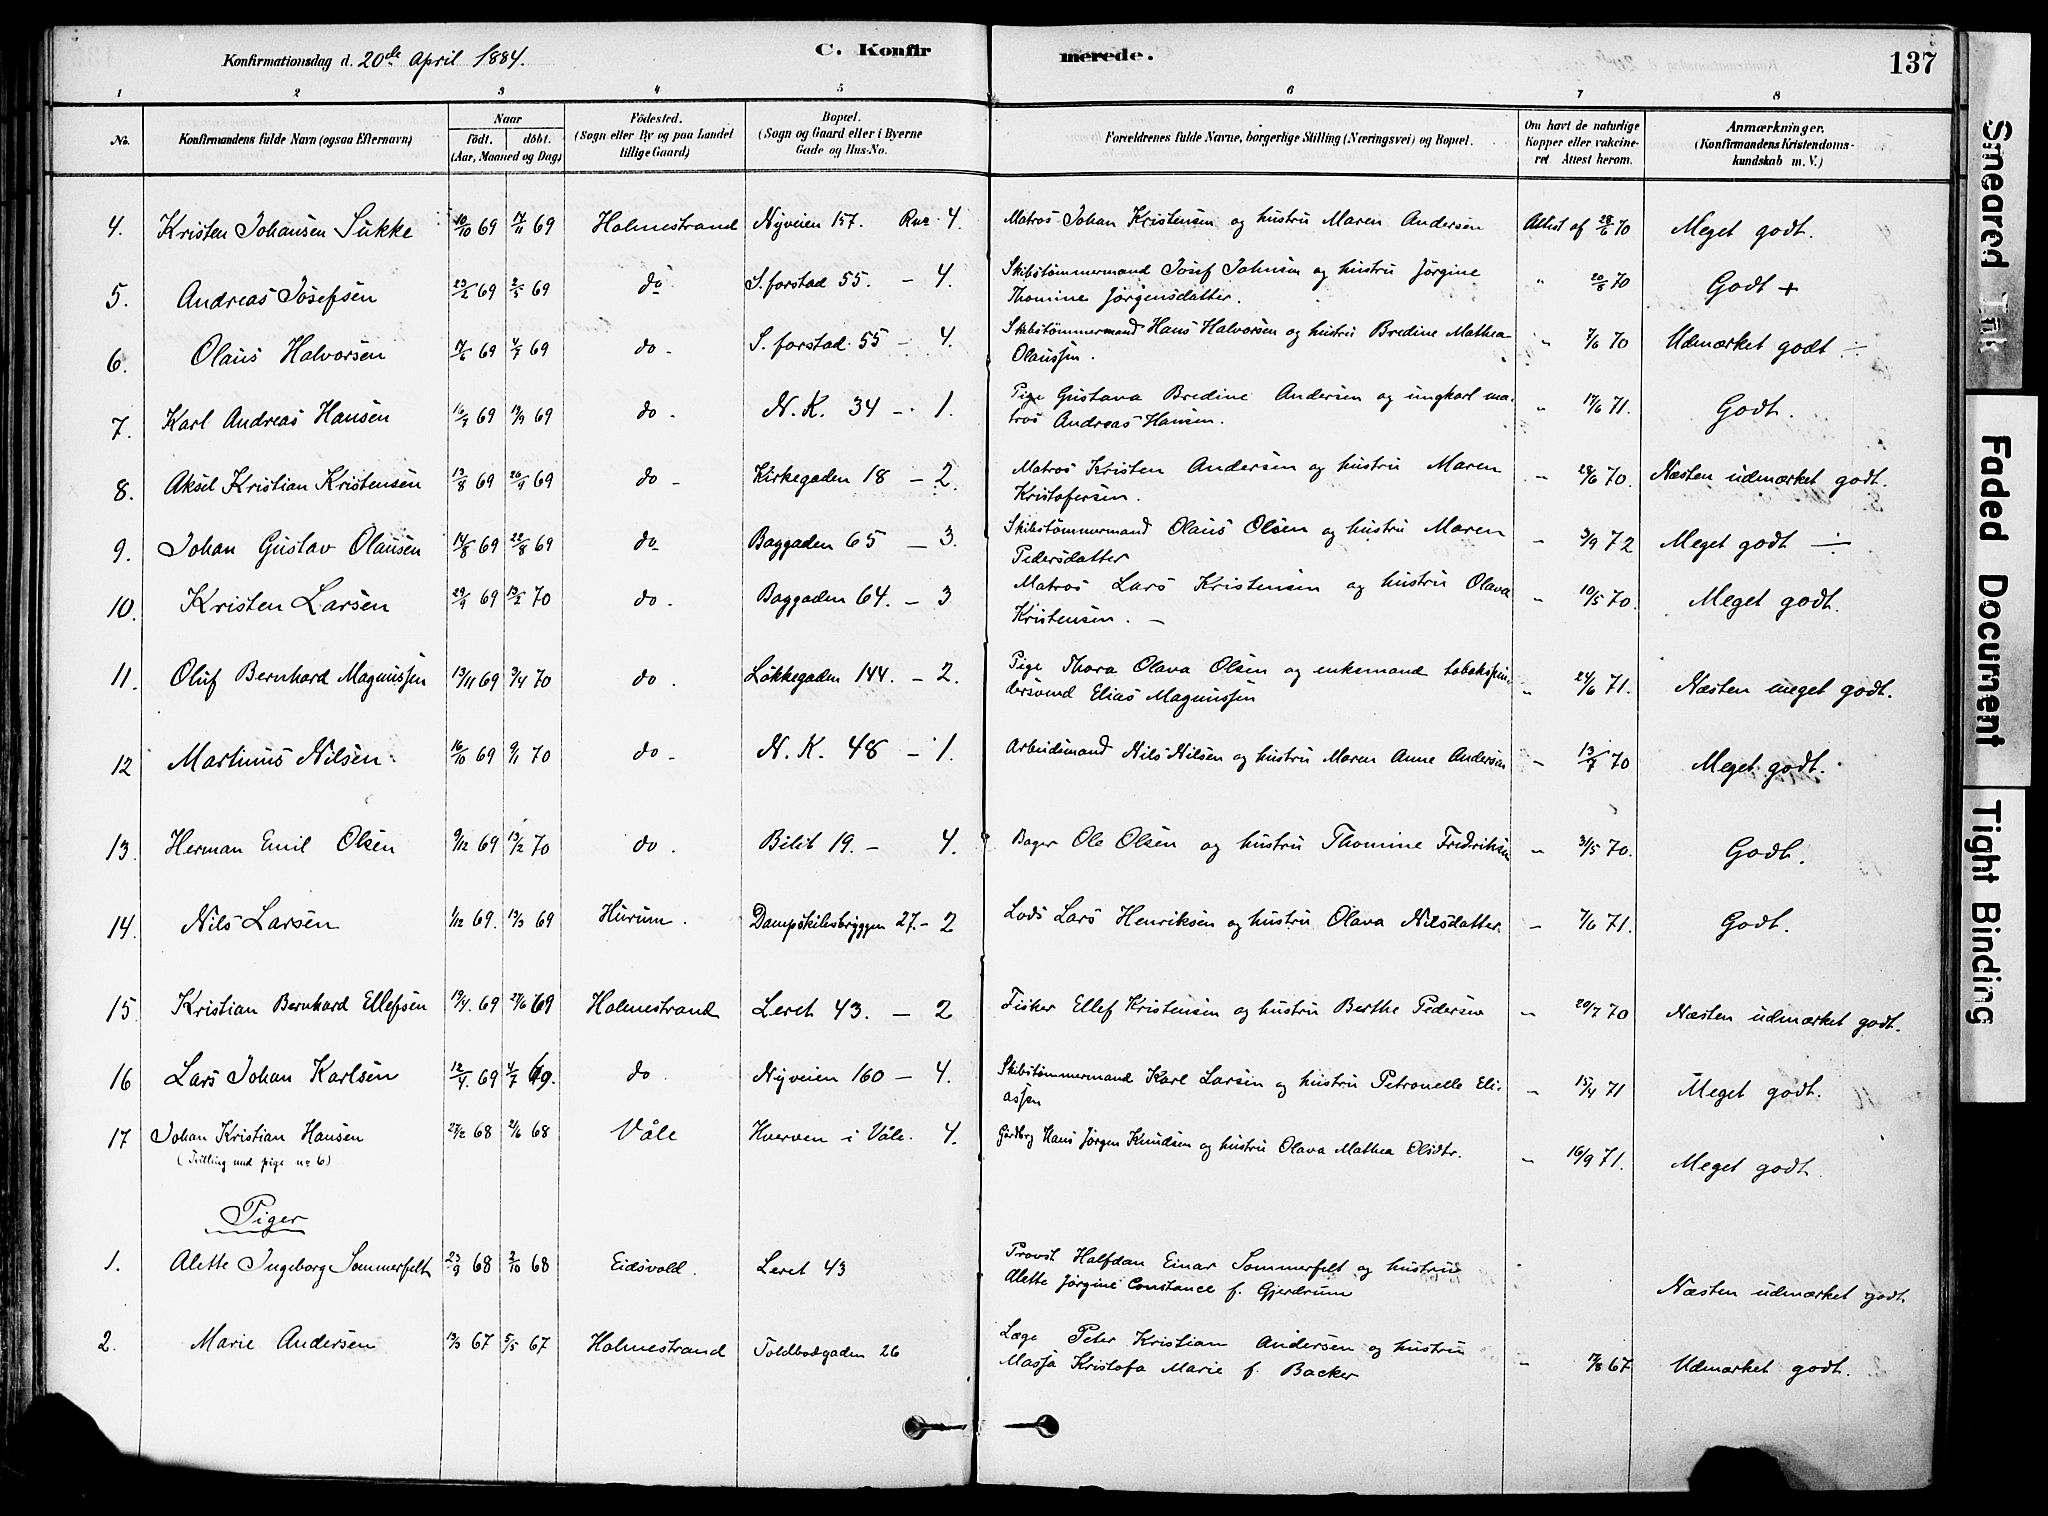 Konfirmationsdag d. 20de April 1884.
C. Konfir
merede.
137
1 2 3 4 5 6 7 8
No. Konfirmandens fulde Navn (ogsaa Efternavn) Naar Födt. döbt. (Aar, Maaned og Dag) Födested. (Sogn eller By og paa Landet tillige Gaard) Bopæl. (Sogn og Gaard eller i Byerne Gade og Hus-No. Forældrenes fulde Navne, borgerlige Stilling (Næringsvei) og Bopæl. Om havt de naturlige Kopper eller vakcineret Attest herom. Anmærkninger. (Konfirmandens Kristendomskundskab m. V.)
4. Kristen Johansen Sukke 10/10 69 14/11 69 Holmestrand Nyveien 157. 4. Matros Johan Kristensen og hustru Maren Andersen Attest af 28/6 70 Meget godt.
5. Andreas Josefsen 23/2 69 2/5 69 do S. forstad 55. - 4. Skibstømmermand Josef Johnsen og hustru Jørgine
Thomine Jørgensdatter. " 20/6 70 Godt +
6. Olaus Halvorsen 17/6 69 4/7 69 do - S. forstad 55 - 4. Skibstømmermand Hans Halvorsen og hustru Bredine Mathea
Olaussen. " 7/6 70 Udmærket godt ÷
7. Karl Andreas Hansen 69 19/9 69 do - N. K. 34 - 1. Pige Gustava Bredine Andersen og ungkarl ma-
tros Andreas Hansen. " 17/6 71. Godt.
8. Aksel Kristian Kristensen 13/8 69 26/9 69 do - Kirkegaden 18 - 2. Matros Kristen Andersen og hustru Maren
Kristofersen. " 28/6 70. Næsten udmærket godt.
9. Johan Gustav Olausen 14/8 69 22/8 69 do Baggaden 65 - 3. Skibstømmermand Olaus Olsen og hustru Maren
Pedersdatter " 3/9 72 Meget godt ÷
10. Kristen Larsen 29/9 69 13/2 70 do. Baggaden 64. - 3 Matros Lars Kristensen og hustru Olava
Kristensen. - " 10/5 70. Meget godt.
11. Oluf Bernhard Magnussen 13/11 69 3/4 70 do. Løkkegaden 144. - 2. Pige Thora Olava Olsen og enkemand tobakspin-
dersvend Elias Magnussen " 24/6 71. Næsten meget godt.
12 Martinus Nilsen 16/10 69 9/1 70 do - N. K. 48 - 1. Arbeidsmand Nils Nilsen og hustru Maren Anne Andersen - 13/7 70 Meget godt.
13. Herman Emil Olsen 9/12 69 13/2 70 do. Belit 19. - 4. Bager Ole Olsen og hustru Thomine Fredriksen " 31/5 70. Godt.
14. Nils Larsen 1/12 69. 13/3 69 Hurum. Dampskibsbryggen 27. - 2 Lods Lars Henriksen og hustru Olava Nilsdatter. " 7/6 71. Godt.
15. Kristian Bernhard Ellefsen 19/4. 69 27/6 69 Holmestrand Leret 43. - 2 Fisker Ellef Kristensen og hustru Berthe Pedersen " 20/7 70 Næsten udmærket godt.
16 Lars Johan Karlsen 12/4 69 4/7 69. do. Nyveien 160 - 4. Skibstømmermand Karl Larsen og hustru Petronelle Eli-
assen " 15/4 71 Meget godt.
17 Johan Kristian Hansen 27/2 68 2/6 68 Våle Hverven i Våle. 4. Gårdbrg Hans Jørgen Knudsen og hustru Olava Mathea Olsdtr. " 16/9 71. Meget godt.
(Tvilling med pige no 6)
Piger
1. Alette Ingeborg Sommerfelt 23/9 68 2/10 68 Eidsvold. Leret 43 Provst Halfdan Einar Sommerfelt og hustru
Alette Jørgine Constance f. Gjerdrum Næsten udmærket godt
2. Marie Andersen 13/3 67 5/5 67 Holmestrand Toldbodgaden 26 Læge Peter Kristian Andersen og hustru
Massa Kristofa Marie f. Backer " 7/8 67 Udmærket godt.
Smeared Ink
Faded Document
Tight Binding